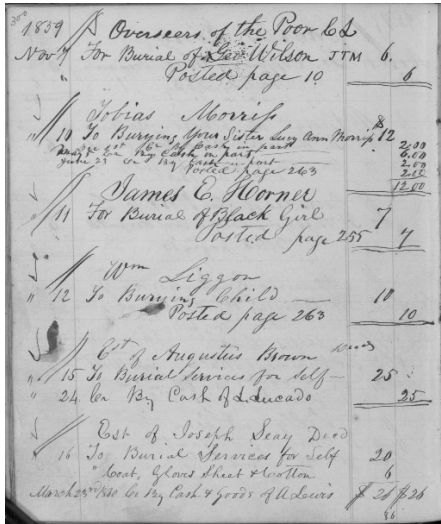 300
1859 Overseers of the Poor C L
Nov 7 For Burial of Geo Wilson JTM 6.
" Posted page 10 6
Tobias Morriss $
" 10 To Burying Your Sister Lucy Ann Morriss 12
Cr By Cash in part 2.00
Cr By Cash in part 6.00
June 23 Cr By Cash in part 2.00
Posted page 263 2.00
12 00
James E. Horner
" 11 For Burial of Black Girl 7
Posted page 255 7
Wm Liggon
" 12 To Burying Child 10
Posted page 263 10
Est of Augustus Brown Decd
" 15 To Burial Services for Self 25
" 24 Cr By Cash of L. Lucado 25
Est of Joseph Seay Decd
" 16 To Burial Services for Self 20
" Coat, Gloves Sheet & Cotton 6
March 23rd 1860 Cr By Cash & Goods of A Lewis $ 26 $ 26